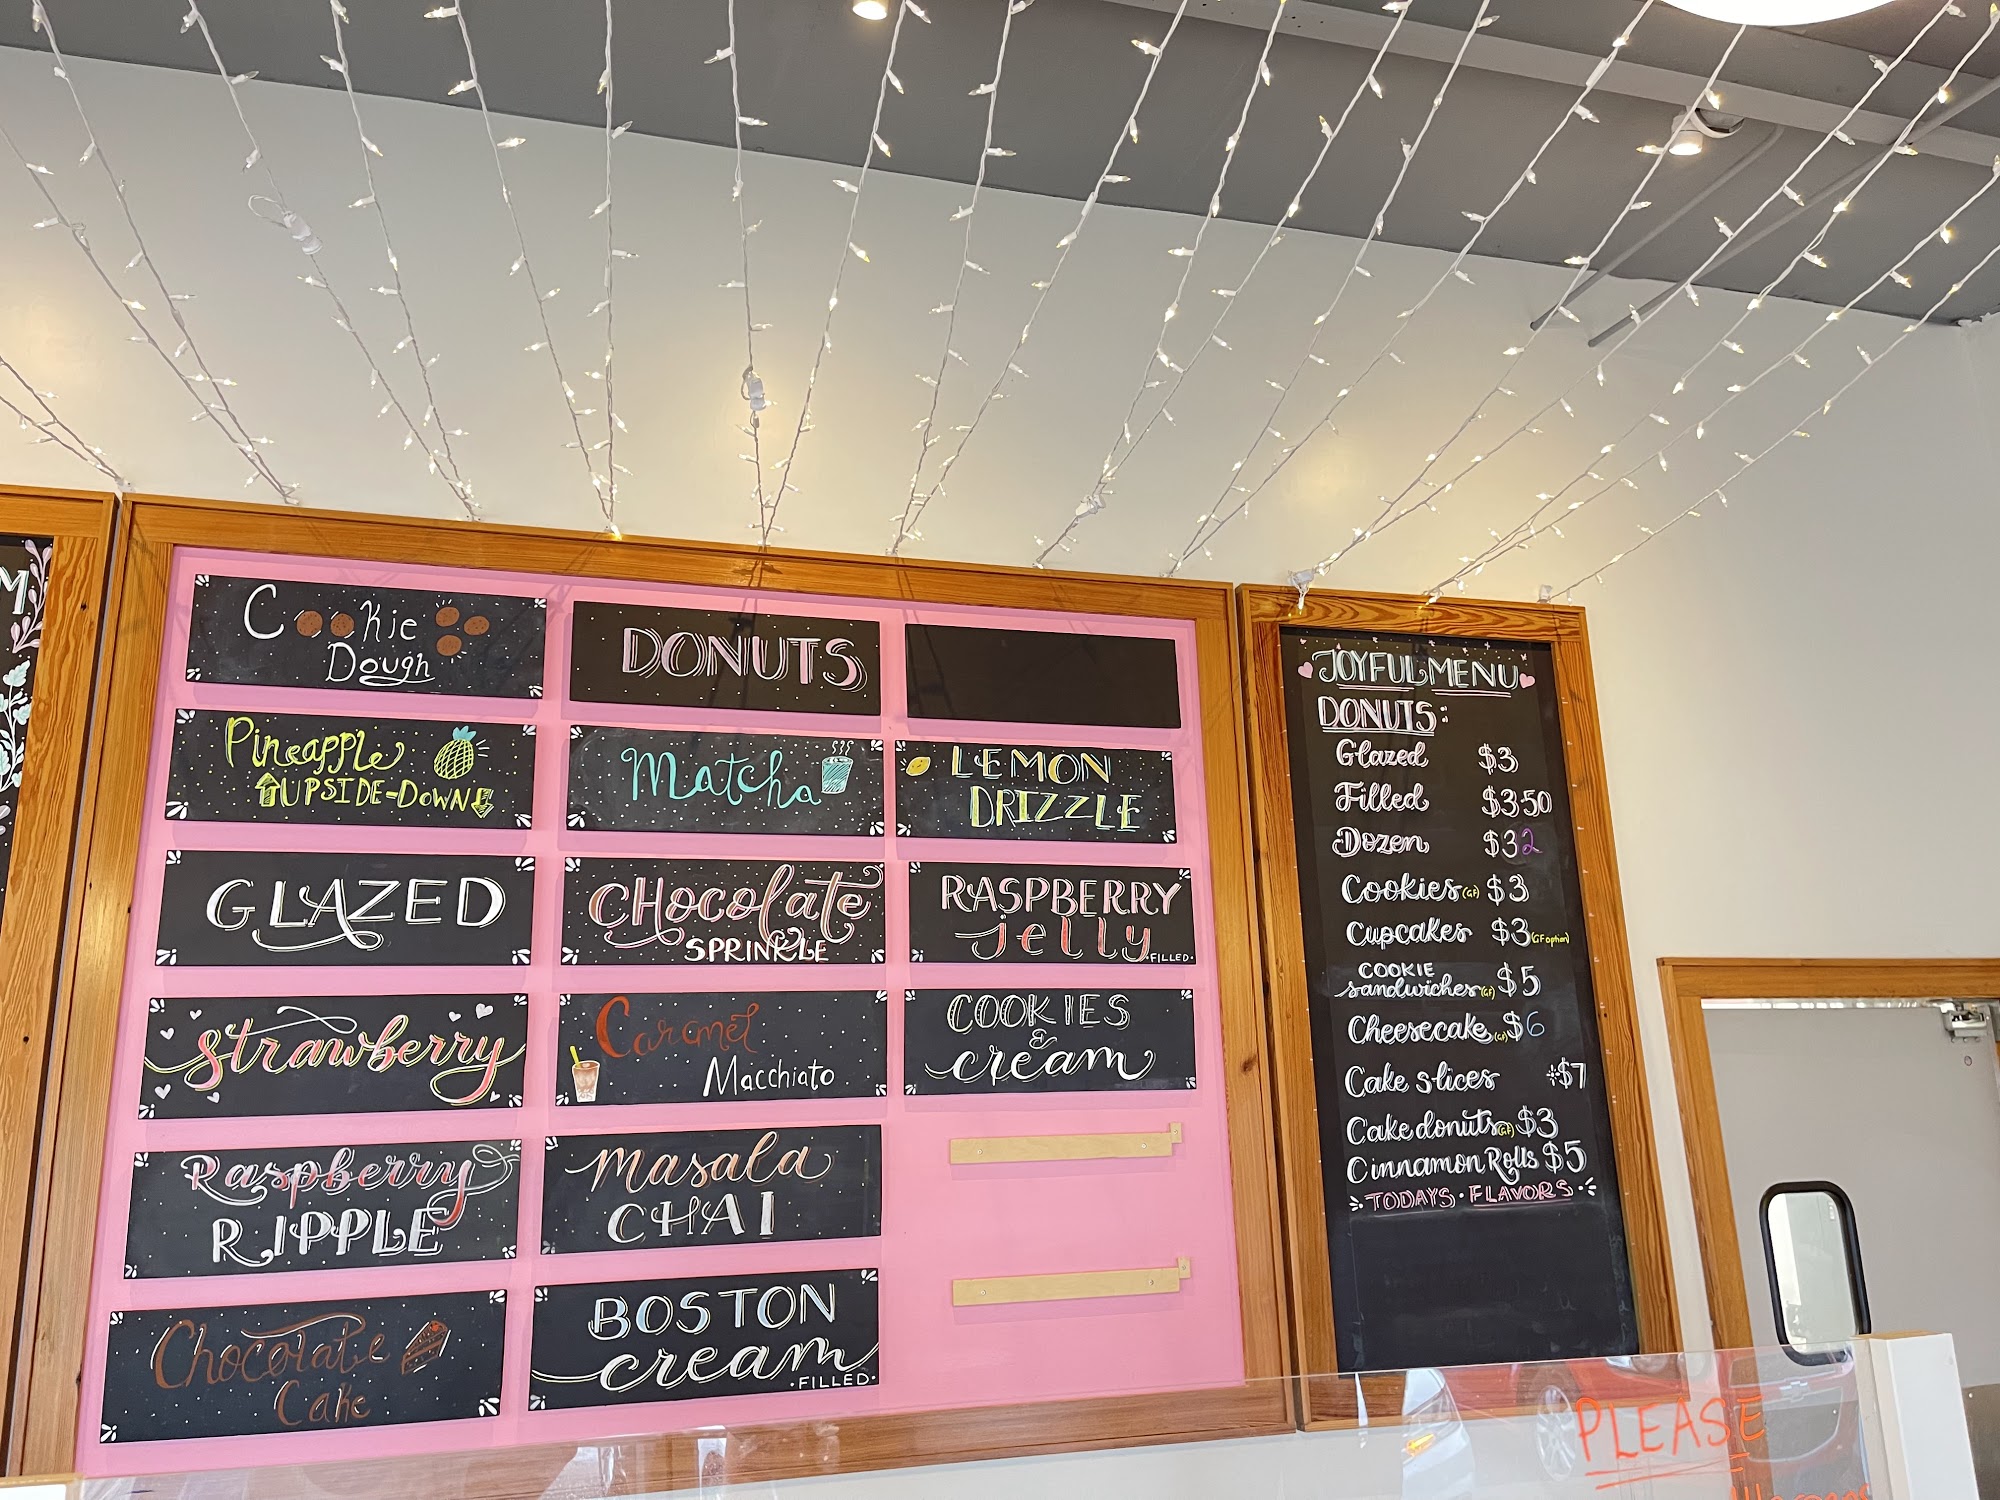 M
Cookie
Dough
Pineapple
UPSIDE-DOWN
GLAZED
Strawberry
Raspberry
RIPPLE
Chocolate
Cake
DONUTS
Matcha
CHocolate
SPRINKLE
Caramel
Macchiato
Masala
CHAI
BOSTON
cream
·FILLED·
LEMON
DRIZZLE
RASPBERRY
jelly
·FILLED·
COOKIES
&
cream
JOYFUL MENU
DONUTS:
Glazed $3
Filled $350
Dozen $32
Cookies (GF) $3
Cupcakes $3 (GF option)
COOKIE
sandwiches (GF) $5
Cheesecake (GF) $6
Cake slices $7
Cake donuts (GF) $3
Cinnamon Rolls $5
TODAYS · FLAVORS
PLEASE